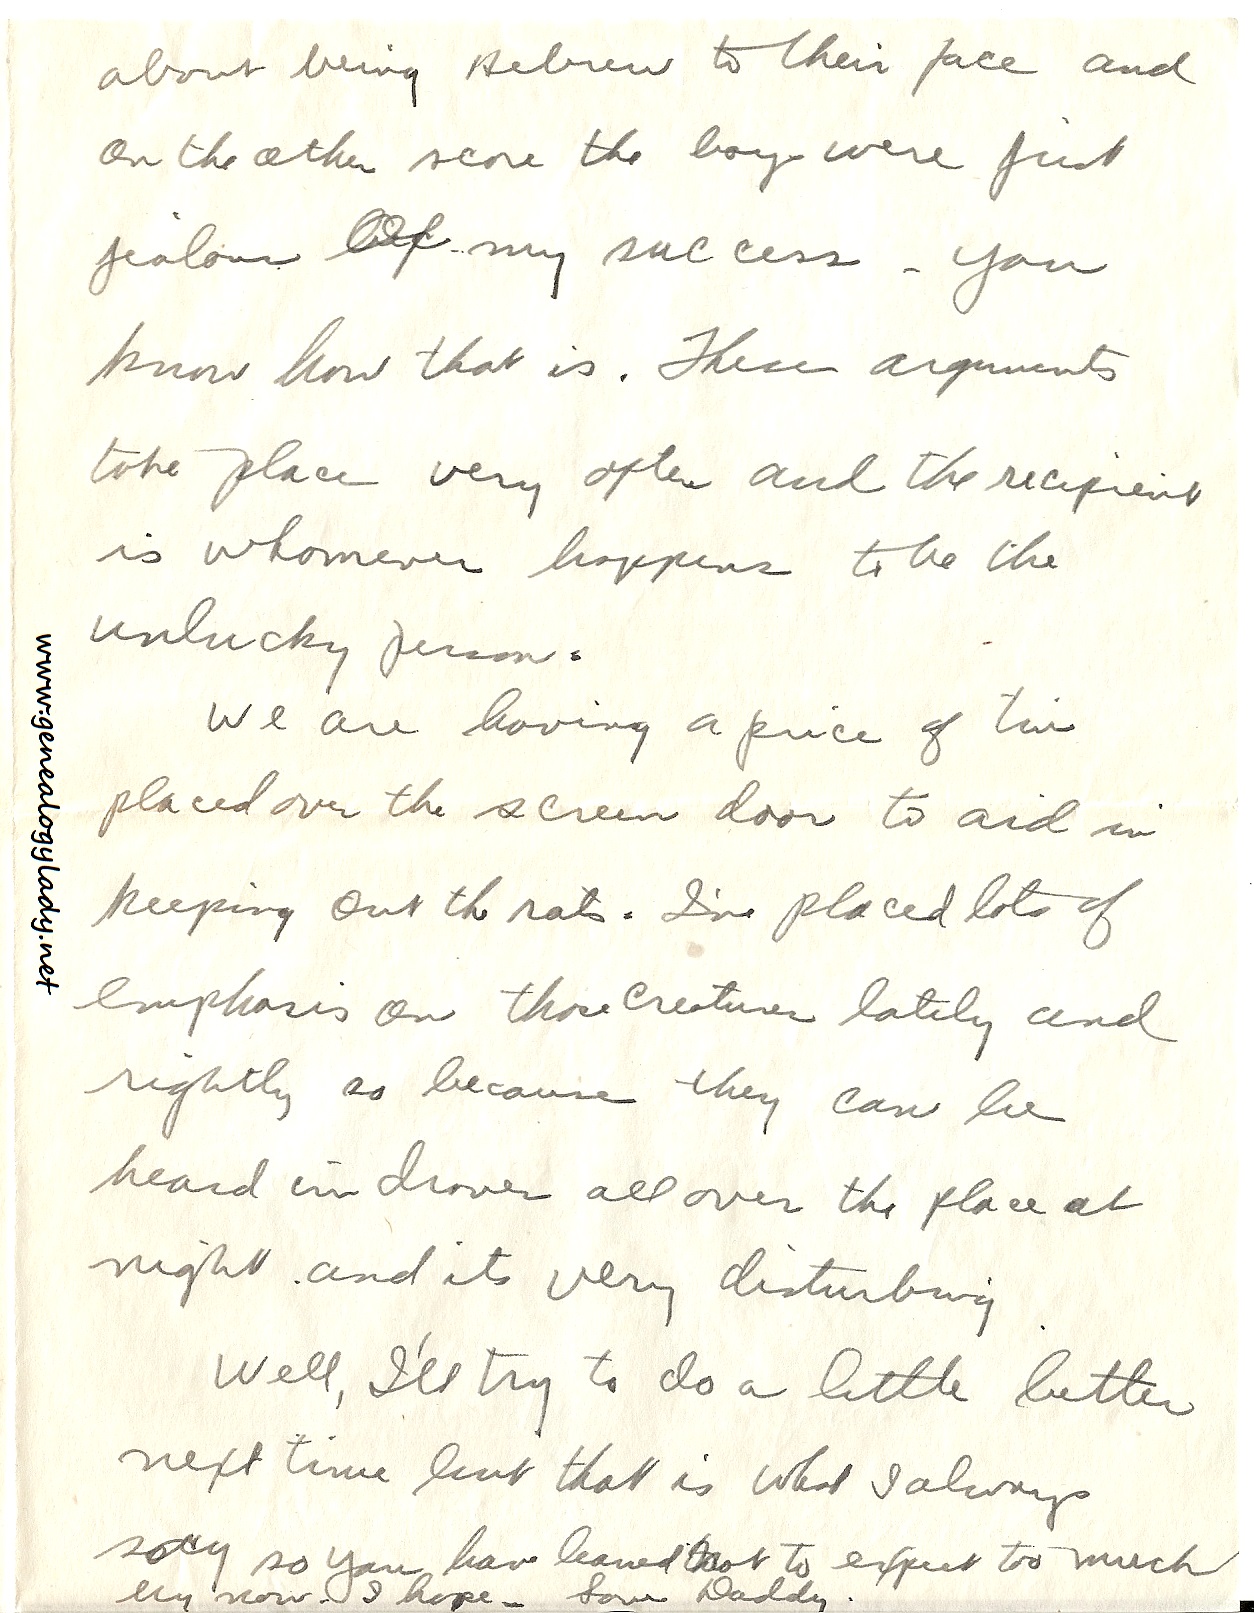 about being Hebrew to their face and
on the other score the boys were just
jealous of my success - you
know how that is. These arguments
take place very often and the recipient
is whomever happens to be the
unlucky person.
We are having a piece of tin
placed over the screen door to aid in
keeping out the rats. I've placed lots of
emphasis on those creatures lately and
rightly so because they can be
heard in droves all over the place at
night. and its very disturbing
Well, I'll try to do a little better
next time but that is what I always
say so you have leaned not to expect too much
by now. I hope - Love Daddy.
www.genealogylady.net